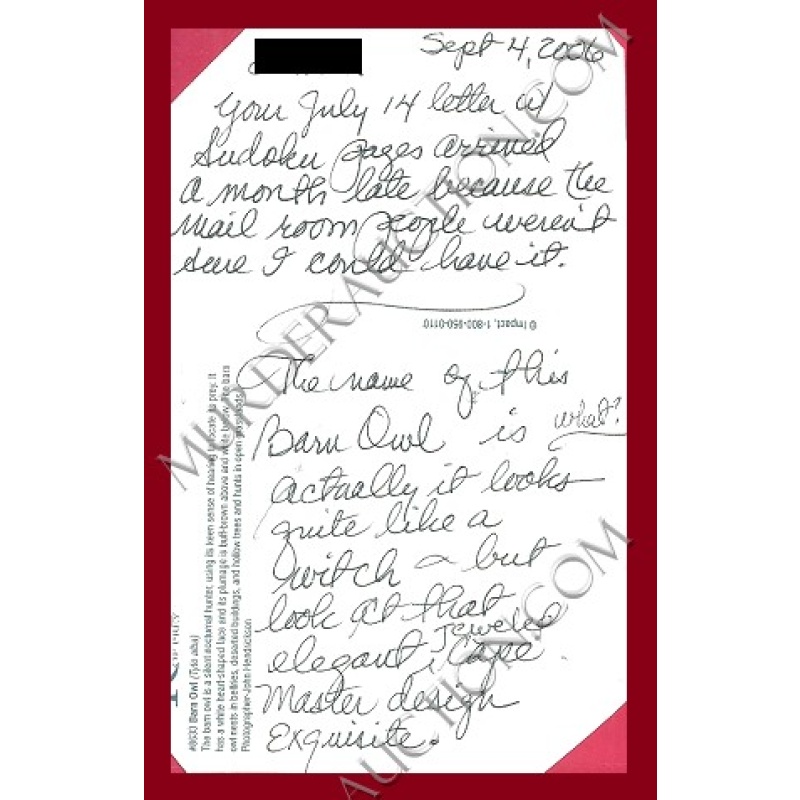 Sept 4, 2006
Your July 14 letter w/
Sudoku pages arrived
a month late because the
mail room people weren't
sure I could have it.
© Impact, 1-800-950-0110
The name of this
Barn Owl is what?
actually it looks
quite like a
witch – but
look at that
elegant, Jeweled Cape.
Master design
Exquisite.
#8633 Barn Owl (Tyto alba)
The barn owl is a silent nocturnal hunter, using its keen sense of hearing to locate its prey. It
has a white heart-shaped face and its plumage is buff-brown above and white below. The barn
owl nests in belfries, deserted buildings, and hollow trees and hunts in open grasslands.
Photographer-John Hendrickson
OF PREY
MURDERAUCTION.COM
AUCTION.COM